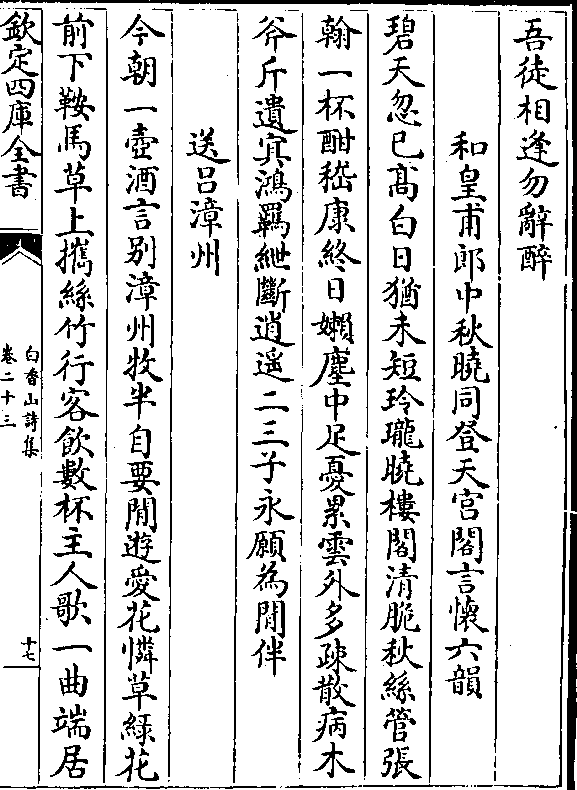 吾徒相逢勿辭醉
和皇甫郎中秋曉同登天宮閣言懷六韻
碧天忽已髙白日猶未短玲瓏曉樓閣清脆秋絲管張
翰一杯酣嵇康終日嬾塵中足憂累雲外多疎散病木
斧斤遺㝠鴻羈紲斷逍遥二三子永願為閒伴
送吕漳州
今朝一壺酒言别漳州牧半自要閒遊愛花憐草緑花
前下鞍馬草上攜絲竹行客飲數杯主人歌一曲端居
欽定四庫全書
白香山詩集
卷二十三
十七